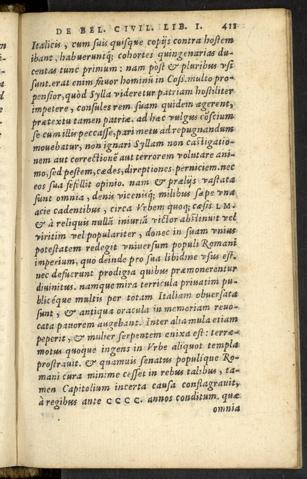 DE BEL. CIVIL. LIB. I. 411
Italicis, cum suis quisque copijs contra hostem
ibant, habueruntq; cohortes quingenarias du-
centas tunc primum: nam post & pluribus usi
sunt. erat enim fauor hominū in Coss. multo pro-
pensior, quòd Sylla videretur patriam hostiliter
impetere, consules rem suam quidem agerent,
prætextu tamen patriæ. ad hæc vulgus cōscium
se cum illis peccasse, pari metu ad repugnandum
mouebatur, non ignari Syllam non castigatio-
nem aut correctionē aut terrorem volutare ani-
mo, sed pestem, cædes, direptiones, perniciem. nec
eos sua fefellit opinio. nam & prælijs vastata
sunt omnia, denis vicenísq; milibus sæpe vna
acie cadentibus, circa Vrbem quoq; cæsis L M.
& à reliquis nullā iniuriā victor abstinuit vel
viritim vel populariter, donec in suam vnius
potestatem redegit vniuersum populi Romani
imperium, quo deinde pro sua libidine vsus est.
nec defuerunt prodigia quibus præmonerentur
diuinitus. namque mira terricula priuatim pu-
blicéque multis per totam Italiam obuersata
sunt, & antiqua oracula in memoriam reuo-
cata pauorem augebant. Inter alia mula etiam
peperit, & mulier serpentem enixa est: terræ-
motus quoque ingens in Vrbe aliquot templa
prostrauit. & quamuis senatus populíque Ro-
mani cura minime cesset in rebus talibus, ta-
men Capitolium incerta causa conflagrauit,
à regibus ante CCCC. annos conditum. quæ
omnia